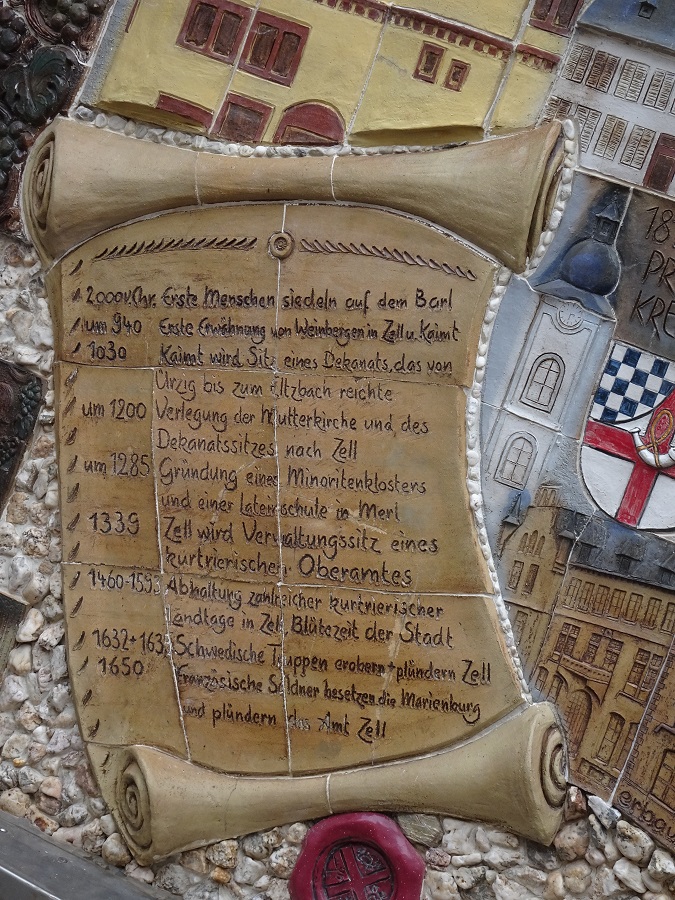 2000v.Chr. Erste Menschen siedeln auf dem Barl
um 940 Erste Erwähnung von Weinbergen in Zell u. Kaimt
1030 Kaimt wird Sitz eines Dekanats, das von
Ürzig bis zum Eltzbach reichte
um 1200 Verlegung der Mutterkirche und des
Dekanatssitzes nach Zell
um 1285 Gründung eines Minoritenklosters
und einer Lateinschule in Merl
1339 Zell wird Verwaltungssitz eines
kurtrierischen Oberamtes
1460-1593 Abhaltung zahlreicher kurtrierischer
Landtage in Zell Blütezeit der Stadt
1632+163 Schwedische Truppen erobern+plündern Zell
1650 Französische Söldner besetzen die Marienburg
und plündern das Amt Zell
18
PR
KRE
erbau